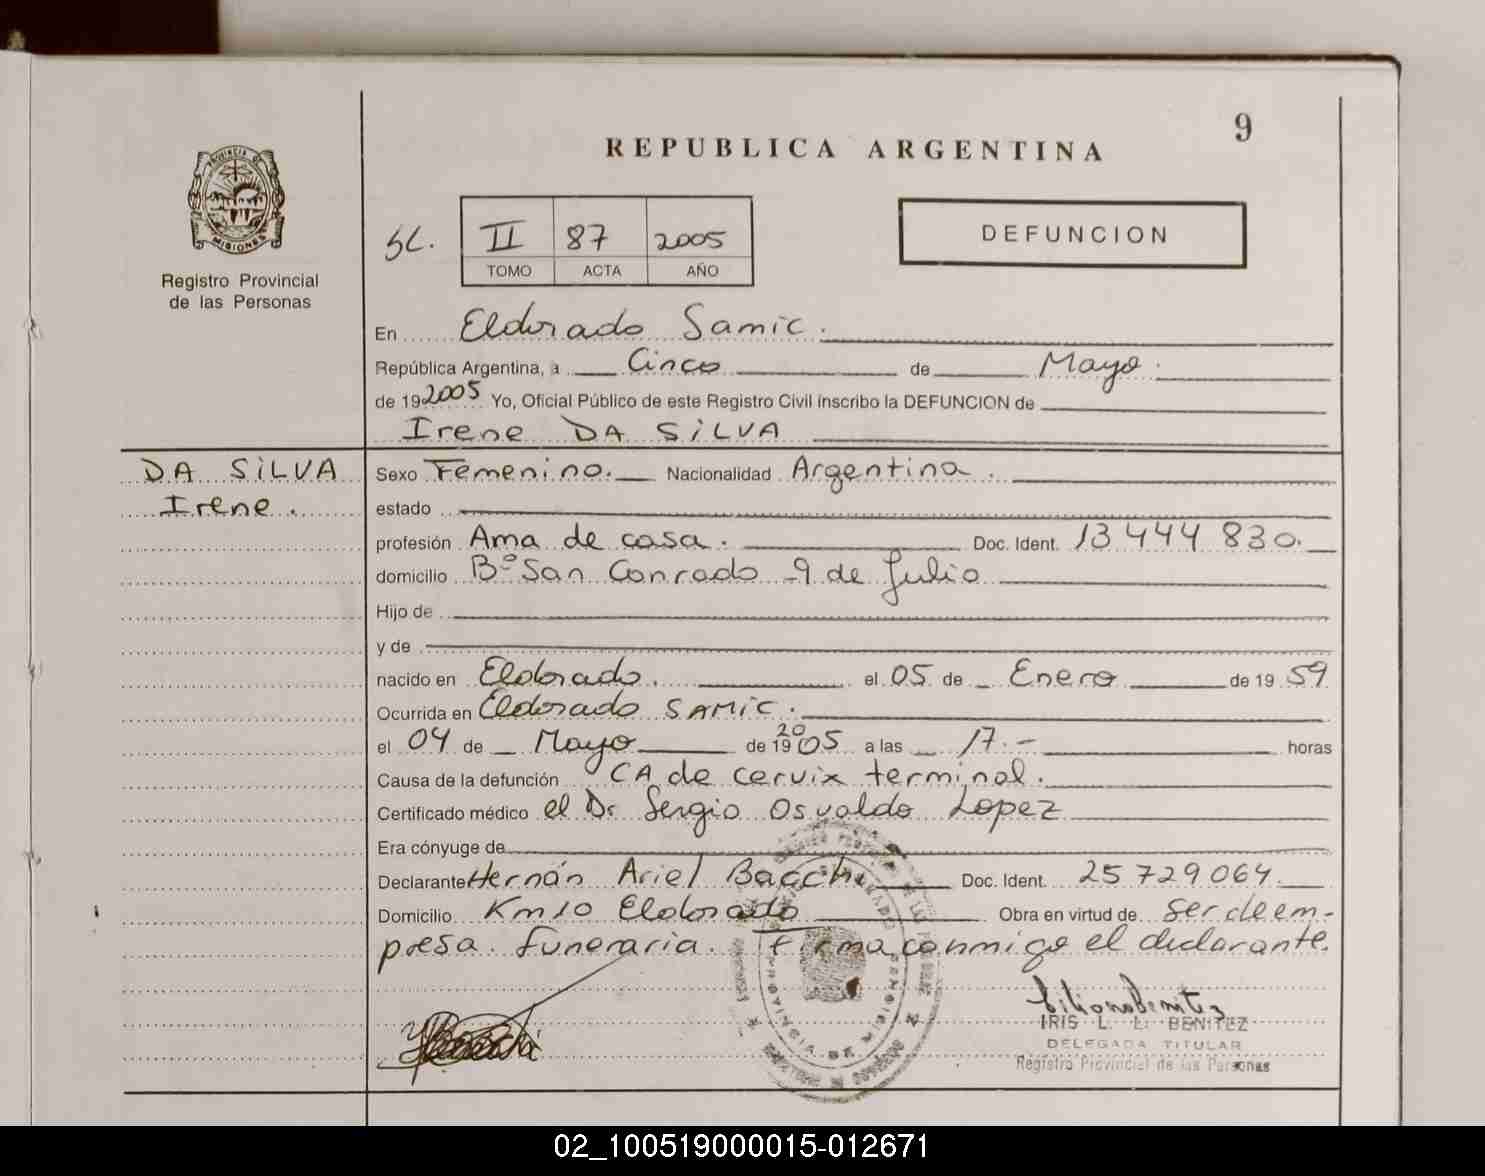 9
REPUBLICA ARGENTINA
PROVINCIA DE
MISIONES
Registro Provincial
de las Personas
SL. II 87 2005
TOMO ACTA AÑO
DEFUNCION
En Eldorado Samic.
República Argentina, a Cinco de Mayo
de 192005 Yo, Oficial Público de este Registro Civil inscribo la DEFUNCION de
Irene DA SiLVA
DA SiLVA
Irene.
Sexo Femenino. Nacionalidad Argentina.
estado
profesión Ama de casa. Doc. Ident. 13444830.
domicilio Bº San Conrado 9 de Julio
Hijo de
y de
nacido en Eldorado. el 05 de Enero de 19 59
Ocurrida en Eldorado SAMIC.
el 04 de Mayo de 19 2005 a las 17.- horas
Causa de la defunción CA de cervix terminal.
Certificado médico el Dr Sergio Osvaldo Lopez
Era cónyuge de
Declarante Hernán Ariel Bacchi Doc. Ident. 25729064.
Domicilio Km10 Eldorado Obra en virtud de ser de em-
presa funeraria. Firma conmigo el declarante.
PROVINCIA DE MISIONES
IRIS L. L. BENITEZ
DELEGADA TITULAR
Registro Provincial de las Personas
02_100519000015-012671